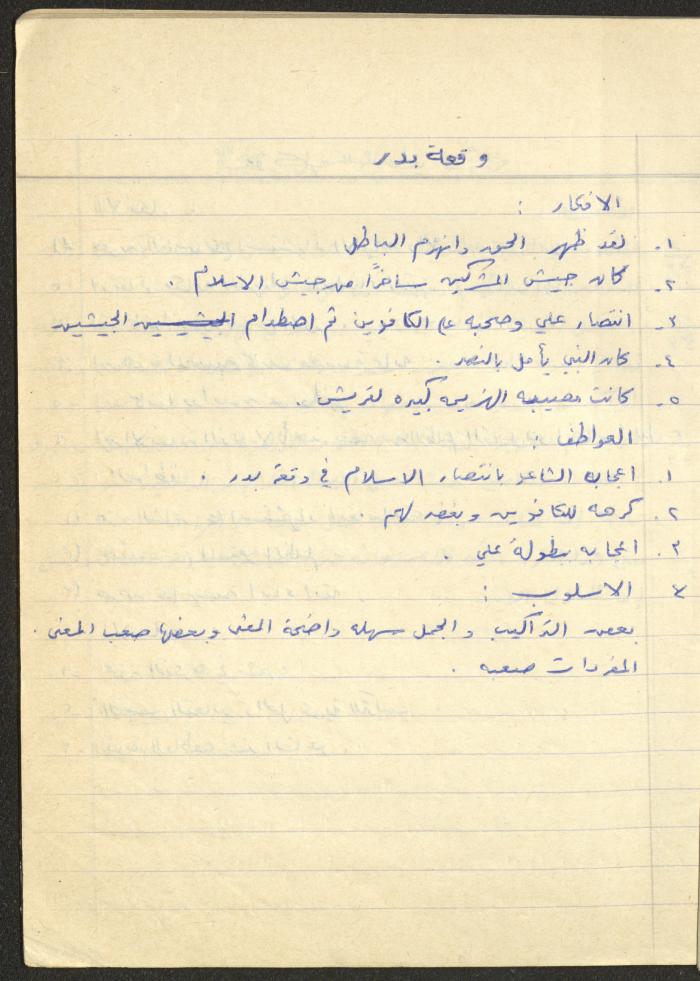 وقعة بدر
الافكار :
١. لقد ظهر الحق وانهزم الباطل
٢. كان جيش المشركين ساخراً من جيش الاسلام .
٣. انتصار علي وصحبه على الكافرين ثم اصطدام الجيشين الجيشين
٤. كان النبي يأمل بالنصر .
٥. كانت مصيبه الهزيمه كبيره لقريش .
العواطف :
١. اعجاب الشاعر بانتصار الاسلام في وقعة بدر .
٢. كرهه للكافرين وبغضه لهم .
٣. اعجابه ببطولة علي .
الاسلوب :
بعض التراكيب والجمل سهله واضحة المعنى وبعضها صعب المعنى .
المفردات صعبه .